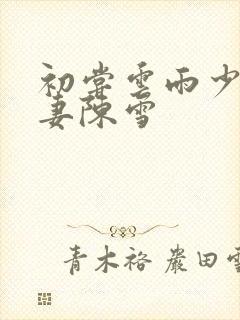 初尝雲雨少
妻陳雪
青木裕 嚴田雪